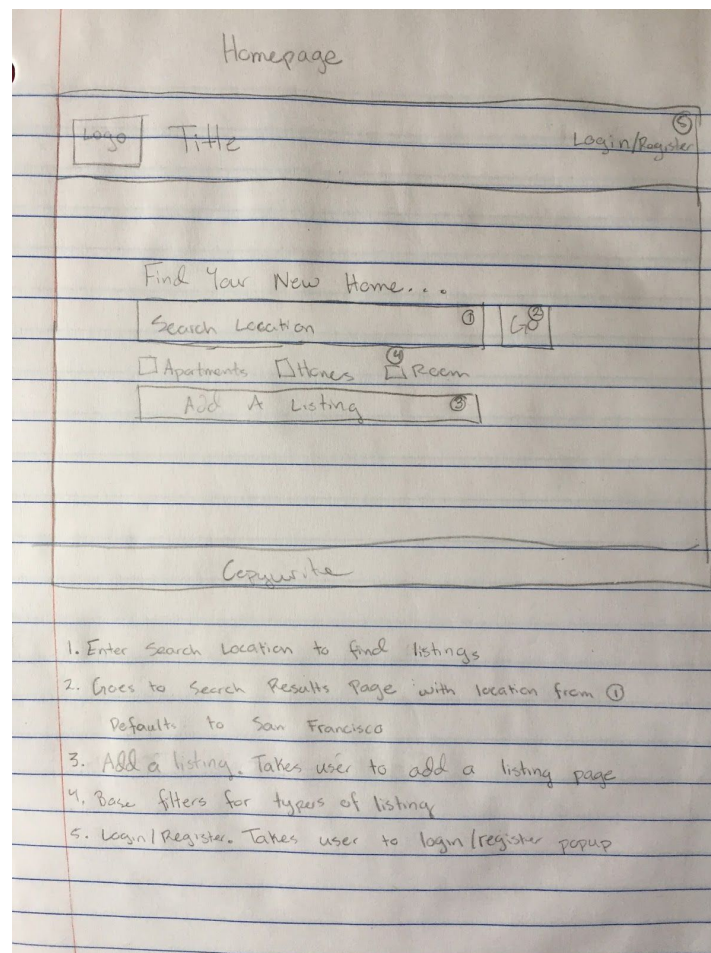 Homepage
Logo Title Login/Register ⑤
Find Your New Home...
Search Location ① Go ②
Apartments Homes ④ Room
Add A Listing ③
Copywrite
1. Enter Search Location to find listings
2. Goes to Search Results Page with location from ①
Defaults to San Francisco
3. Add a listing. Takes user to add a listing page
4. Base filters for types of listing
5. Login/Register. Takes user to login/register popup